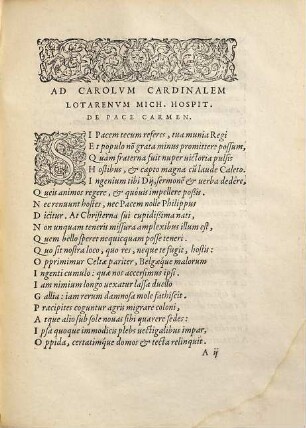 AD CAROLVM CARDINALEM
LOTARENVM MICH. HOSPIT.
DE PACE CARMEN.
SI Pacem tecum referes, tua munia Regi
Et populo nõ grata minus promittere possum,
Quàm fraterna fuit nuper victoria pulsis
Hostibus, & capto magna cũ laude Caleto.
Ingenium tibi Dij, sermonẽ & verba dedêre,
Queis animos regere, & quóuis impellere possis:
Nec renuunt hostes, nec Pacem nolle Philippus
Dicitur. At Christerna sui cupidissima nati,
Non vnquam teneris missura amplexibus illum est,
Quem bello speret nequicquam posse teneri.
Quo sit nostra loco, quo res, neque te fugit, hostis:
Opprimimur Celtæ pariter, Belgæque malorum
Ingenti cumulo: quæ nos accersimus ipsi.
Iam nimium longo vexatur lassa duello
Gallia: iam rerum damnosa mole fathiscit.
Præcipites coguntur agris migrare coloni,
Atque alio sub sole nouas sibi quærere sedes:
Ipsa quoque immodicis plebs vectigalibus impar,
Oppida, certatimque domos & tecta relinquit.
A ij